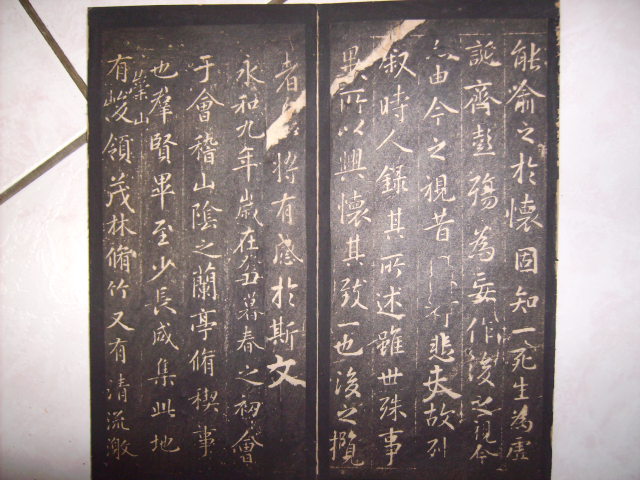 能喻之於懷固知一死生為虛
誕齊彭殤為妄作後之視今
由今之視昔悲夫故列
叙時人錄其所述雖世殊事
異所以興懷其致一也後之攬
者將有感於斯文
永和九年歲在癸丑暮春之初會
于會稽山陰之蘭亭脩稧事
也羣賢畢至少長咸集此地
有崇山峻領茂林脩竹又有清流激